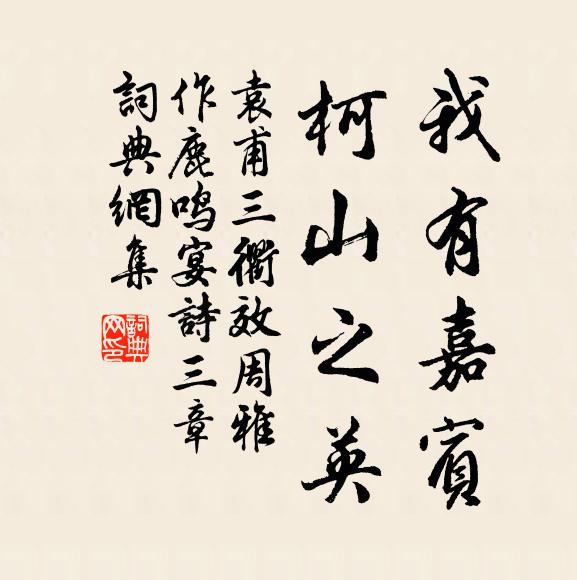 我有嘉賓
柯山之英
袁甫三衢效周雅
作鹿鸣宴詩三章
詞典網集
詞典网印